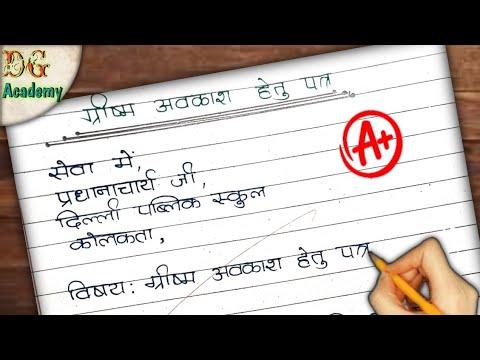 DG
Academy
ग्रीष्म अवकाश हेतु पत्र
A+
सेवा में,
प्रधानाचार्य जी,
दिल्ली पब्लिक स्कुल
कोलकता,
विषय: ग्रीष्म अवकाश हेतु पत्र